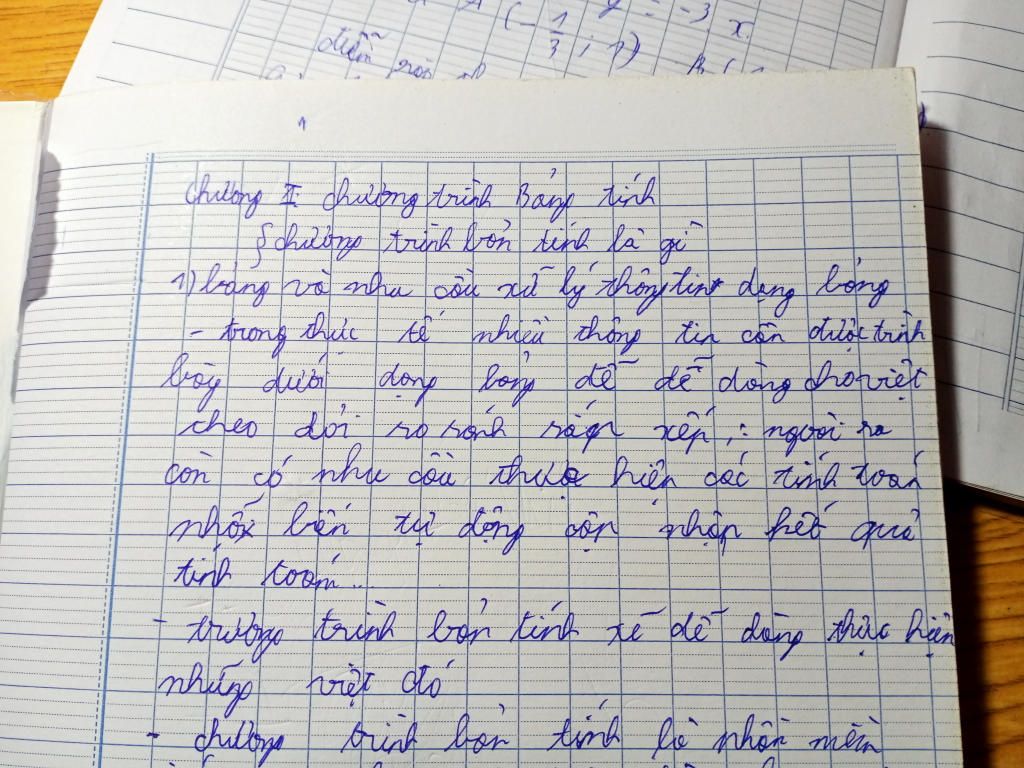 (-1/3; 1)
y = -3 x
điểm
Chương II chương trình Bảng tính
§ chương trình bản tính là gì
1) bảng và nhu cầu xử lý thông tin dạng bảng
- trong thực tế nhiều thông tin cần được trình
bày dưới dạng bảng để dễ dàng cho việt
cheo dỏi so sánh xếp ; người ra
còn có nhu cầu thực hiện các tính toán
biến tự động cập nhập kết quả
tính toán...
- trương trình bản tính xẽ dễ dàng thực hiện
những việt đó
- chương trình bản tính là phần mền